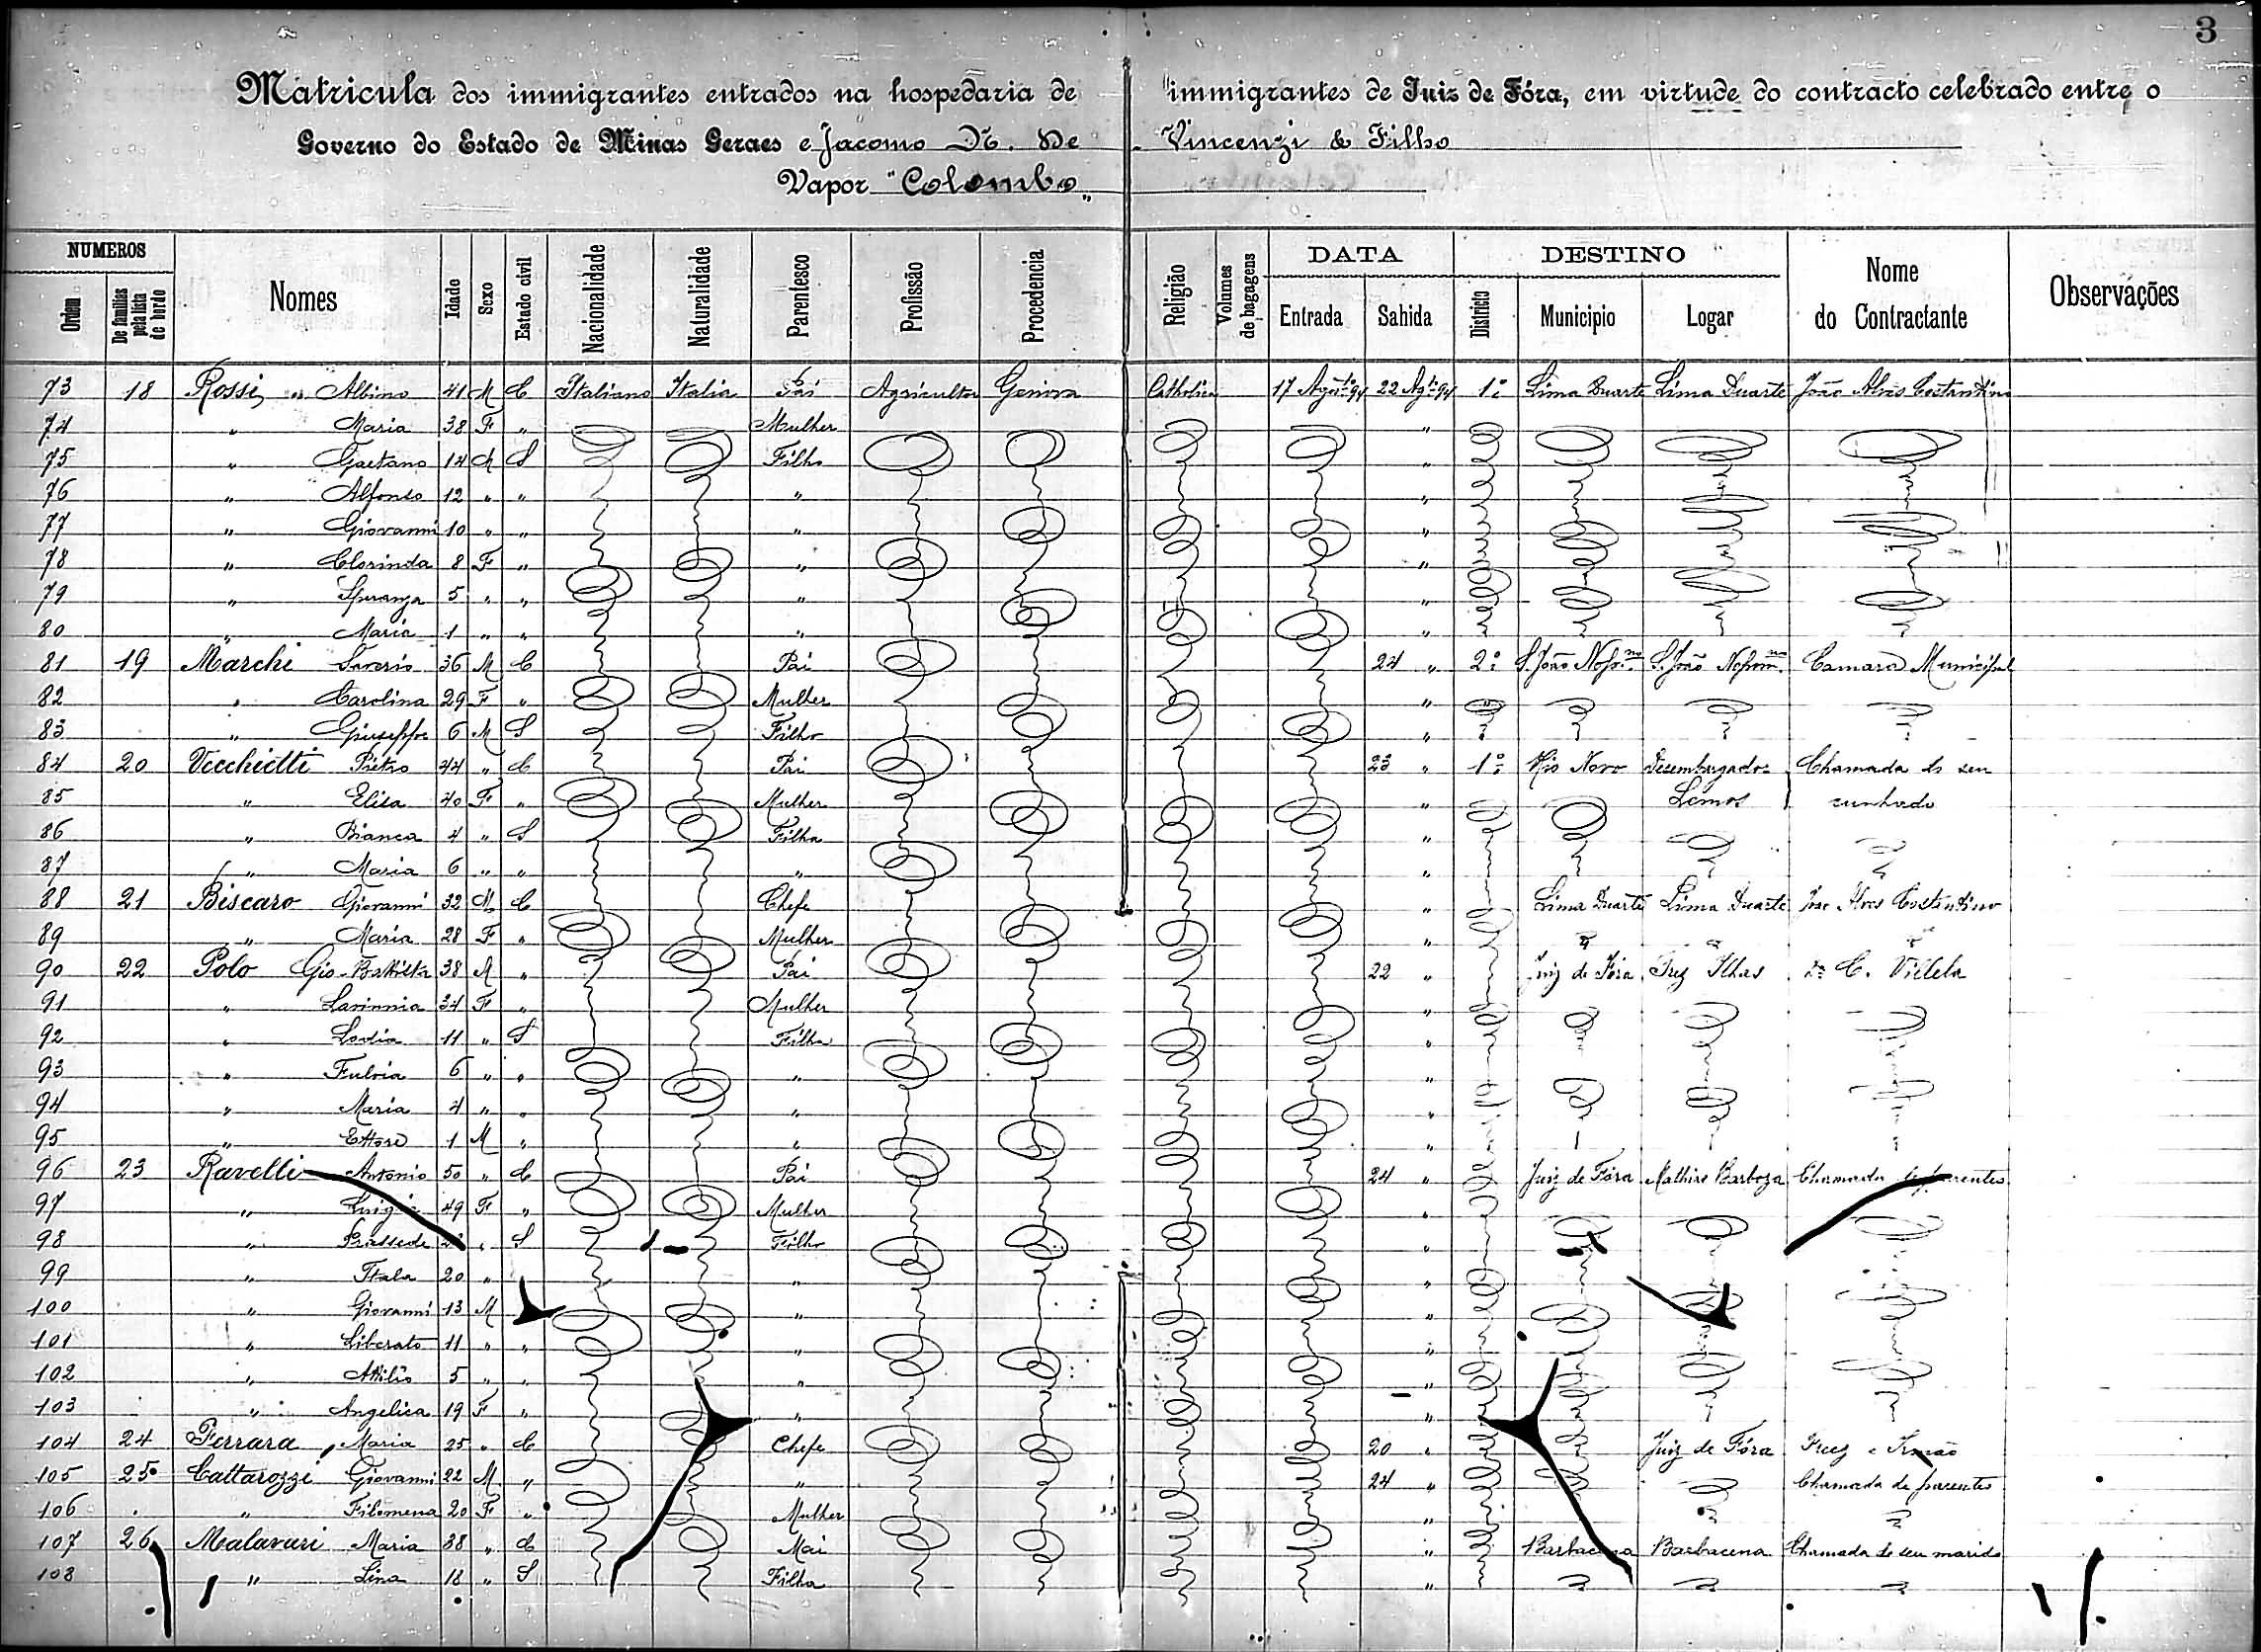 3
Matricula dos immigrantes entrados na hospedaria de immigrantes de Juiz de Fóra, em virtude do contracto celebrado entre o
Governo do Estado de Minas Geraes e Jacomo N. De Vincenzi & Filho
Vapor "Colombo"
NUMEROS Nomes Idade Sexo Estado civil Nacionalidade Naturalidade Parentesco Profissão Procedencia Religião Volumes de bagagens DATA DESTINO Nome do Contractante Observações
Ordem De familias pela lista de bordo Entrada Sahida Districto Municipio Logar
73 18 Rossi Albino 41 M C Italiano Italia Pai Agricultor Genova Catholica 17 Agosto 94 22 Agto 94 1º Lima Duarte Lima Duarte João Alves Costantino
74 " Maria 38 F " Mulher "
75 " Gaetano 14 M S Filho "
76 " Alfonso 12 " " " "
77 " Giovanni 10 " " " "
78 " Clorinda 8 F " " "
79 " Speranza 5 " " " "
80 " Maria 1 " " " "
81 19 Marchi Saverio 36 M C Pai 24 " 2º S. João Nepno S. João Nepomno Camara Municipal
82 " Carolina 29 F " Mulher "
83 " Giuseppe 6 M S Filho "
84 20 Vecchietti Pietro 44 " C Pai 23 " 1º Rio Novo Desembargador Chamada do seu
85 " Elisa 40 F " Mulher " Lemos cunhado
86 " Bianca 4 " S Filha "
87 " Maria 6 " " " "
88 21 Biscaro Giovanni 32 M C Chefe " Lima Duarte Lima Duarte João Alves Costantino
89 " Maria 28 F " Mulher "
90 22 Polo Gio-Battista 38 M " Pai 22 " Juiz de Fóra Trez Ilhas Dr. C. Villela
91 " Lavinnia 34 F " Mulher "
92 " Lodia 11 " S Filha "
93 " Fulvia 6 " " " "
94 " Maria 4 " " " "
95 " Ettore 1 M " " "
96 23 Ravelli Antonio 50 " C Pai 24 " Juiz de Fóra Mathias Barboza Chamada de parentes
97 " Luigia 49 F " Mulher "
98 " Prassede " S Filho "
99 " Itala 20 " " "
100 " Giovanni 13 M "
101 " Liberato 11 " " " "
102 " Attilio 5 " " " "
103 " Angelica 19 F " " "
104 24 Ferrara Maria 25 " C Chefe 20 " Juiz de Fóra e Irmão
105 25 Cattarozzi Giovanni 22 M " " 24 " Chamada de parentes
106 " Filomena 20 F " Mulher "
107 26 Malavasi Maria 38 " C Mai " Barbacena Barbacena Chamada de seu marido
108 " Lina 18 " S Filha "